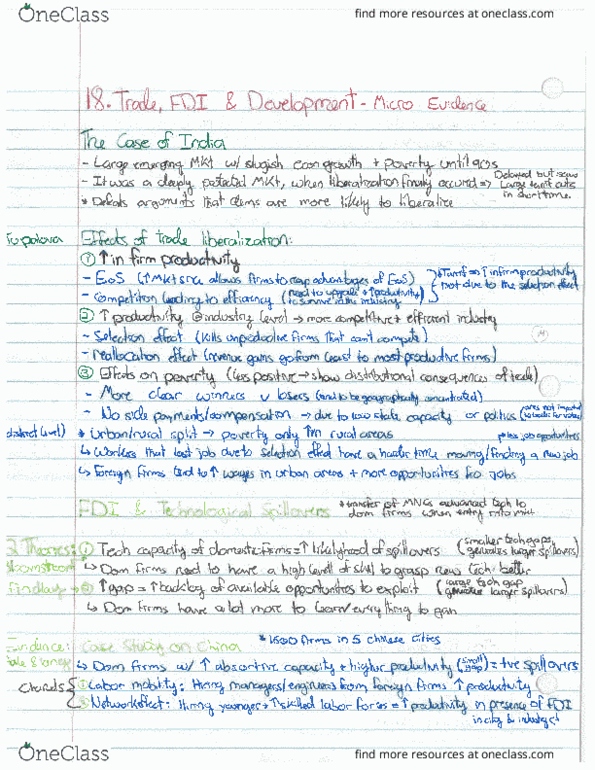 OneClass
find more resources at oneclass.com
18. Trade, FDI & Development - Micro Evidence
The Case of India
- Large emerging MKT w/ slugish econ growth + poverty until 90s
- It was a deeply protected MKT, when liberalization finally occured => Delayed but saw
Large tariff cuts
in short time.
* Defeats arguments that dems are more likely to liberalize
Topalova
Effects of trade liberalization:
① ↑ in firm productivity
- EoS (↑ MKT size allows firms to reap advantages of EoS)
- Competition leading to efficiency (need to upgrade + ↑ productivity
to survive in the industry)
↓ Tariff = ↑ in firm productivity
not due to the selection effect
② ↑ productivity @ industry level → more competitive + efficient industry
- Selection effect (kills unproductive firms that can't compete)
- Reallocation effect (revenue gains go from least to most productive firms)
③ Effects on poverty (less positive → show distributional consequences of trade)
- More clear winners v losers (tend to be geographically concentrated)
- No side payments/compensation → due to low state capacity or politics
(district level)
* Urban/rural split → poverty only ↑ in rural areas
↳ Workers that lost job due to selection effect have a harder time moving/finding a new job
↳ Foreign firms tend to ↑ wages in urban areas + more opportunities for jobs
FDI & Technological Spillovers
* transfer of MNCs advanced tech to
dom firms when entry into mkt
2 Theories:
① Tech capacity of domestic firms = ↑ likelyhood of spillovers (smaller tech gaps
generates larger spillovers)
↳ Dom firms need to have a high level of skill to grasp new tech better
Findlay →
② ↑ gap = ↑ backlog of available opportunities to exploit (large tech gap
generate larger spillovers)
↳ Dom firms have a lot more to learn/everything to gain
Evidence:
Case Study on China
* 1500 firms in 5 chinese cities
↳ Dom firms w/ ↑ absorptive capacity + higher productivity (small gap) = +ive spillovers
Channels
① Labor mobility: Hiring managers/engineers from foreign firms ↑ productivity
② Network effect: Hiring younger + ↑ skilled labor force = ↑ productivity in presence of FDI
in city & industry
OneClass
find more resources at oneclass.com